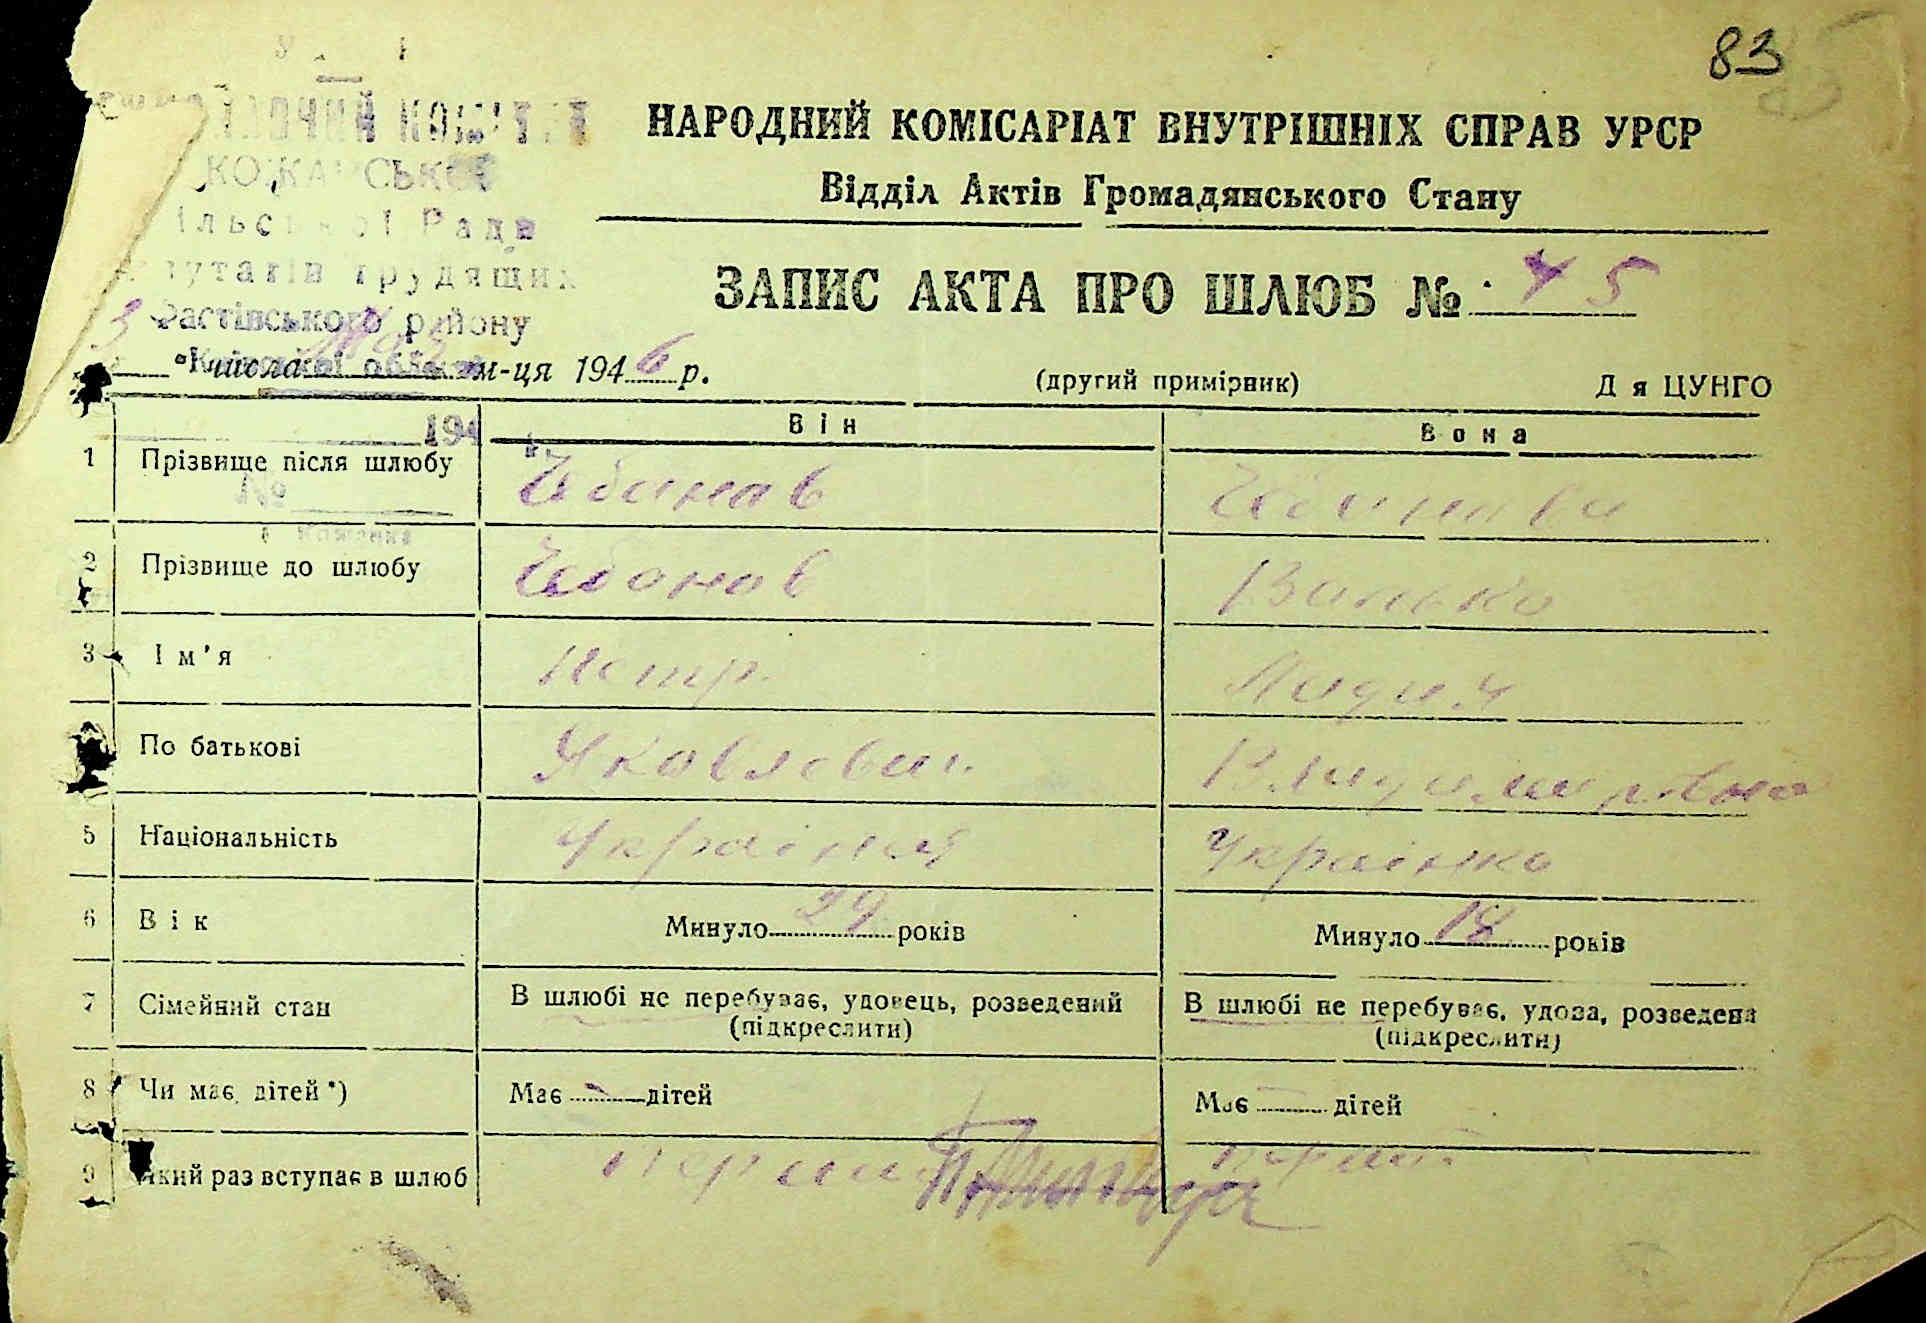 83
КОЖАНСЬКОЇ
ільської Ради
путатів трудящих
Фастівського району
НАРОДНИЙ КОМІСАРІАТ ВНУТРІШНІХ СПРАВ УРСР
Відділ Актів Громадянського Стану
ЗАПИС АКТА ПРО ШЛЮБ № 45
3 числа м-ця 1946 р.
(другий примірник)
Д я ЦУНГО
194
Він
Вона
1 Прізвище після шлюбу Чебанов Чебанова
№
2 Прізвище до шлюбу Чебонов Ванько
3 Ім'я Петр. Надия
По батькові Яковлевич Владимировна
5 Національність Українец Українка
6 Вік Минуло 29 років Минуло 18 років
7 Сімейний стан В шлюбі не перебуває, удовець, розведений В шлюбі не перебуває, удова, розведена
(підкреслити) (підкреслити)
8 Чи має дітей *) Має - дітей Має дітей
9 Який раз вступає в шлюб перший перший